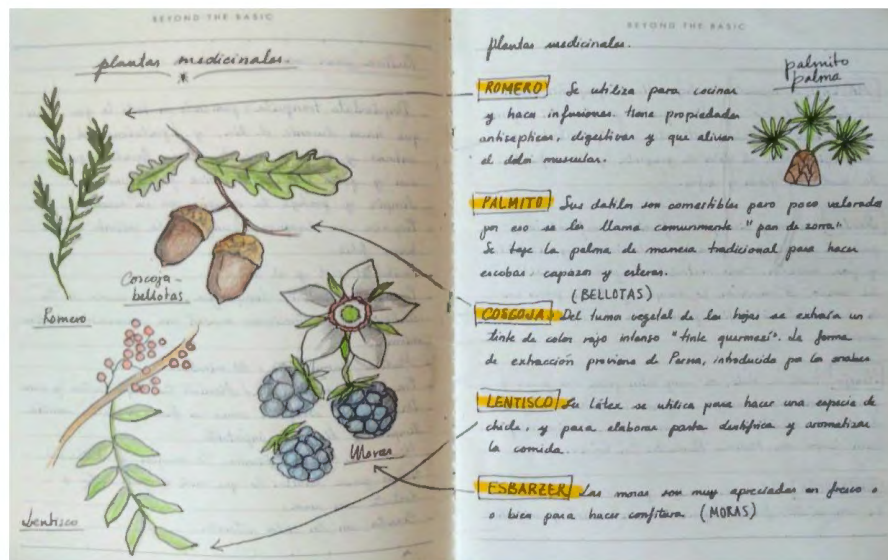 BEYOND THE BASIC
plantas medicinales.
Romero
Coscoja-
bellotas
Moras
Lentisco
BEYOND THE BASIC
plantas medicinales.
palmito
palma
ROMERO Se utiliza para cocinar
y hacer infusiones. tiene propiedades
antisepticas, digestivas y que alivian
el dolor muscular.
PALMITO Sus datiles son comestibles pero poco valorados
por eso se les llama comunmente "pan de zorra"
Se teje la palma de manera tradicional para hacer
escobas capazos y esteras.
(BELLOTAS)
COSCOJA. Del tumor vegetal de las hojas se extraía un
tinte de color rojo intenso "tinte quermesí". La forma
de extracción proviene de Persia, introducido por los arabes
LENTISCO Su látex se utilica para hacer una especie de
chicle, y para elaborar pasta dentífrica y aromatizar
la comida.
ESBARZER Las moras son muy apreciadas en fresco o
o bien para hacer confitura (MORAS)